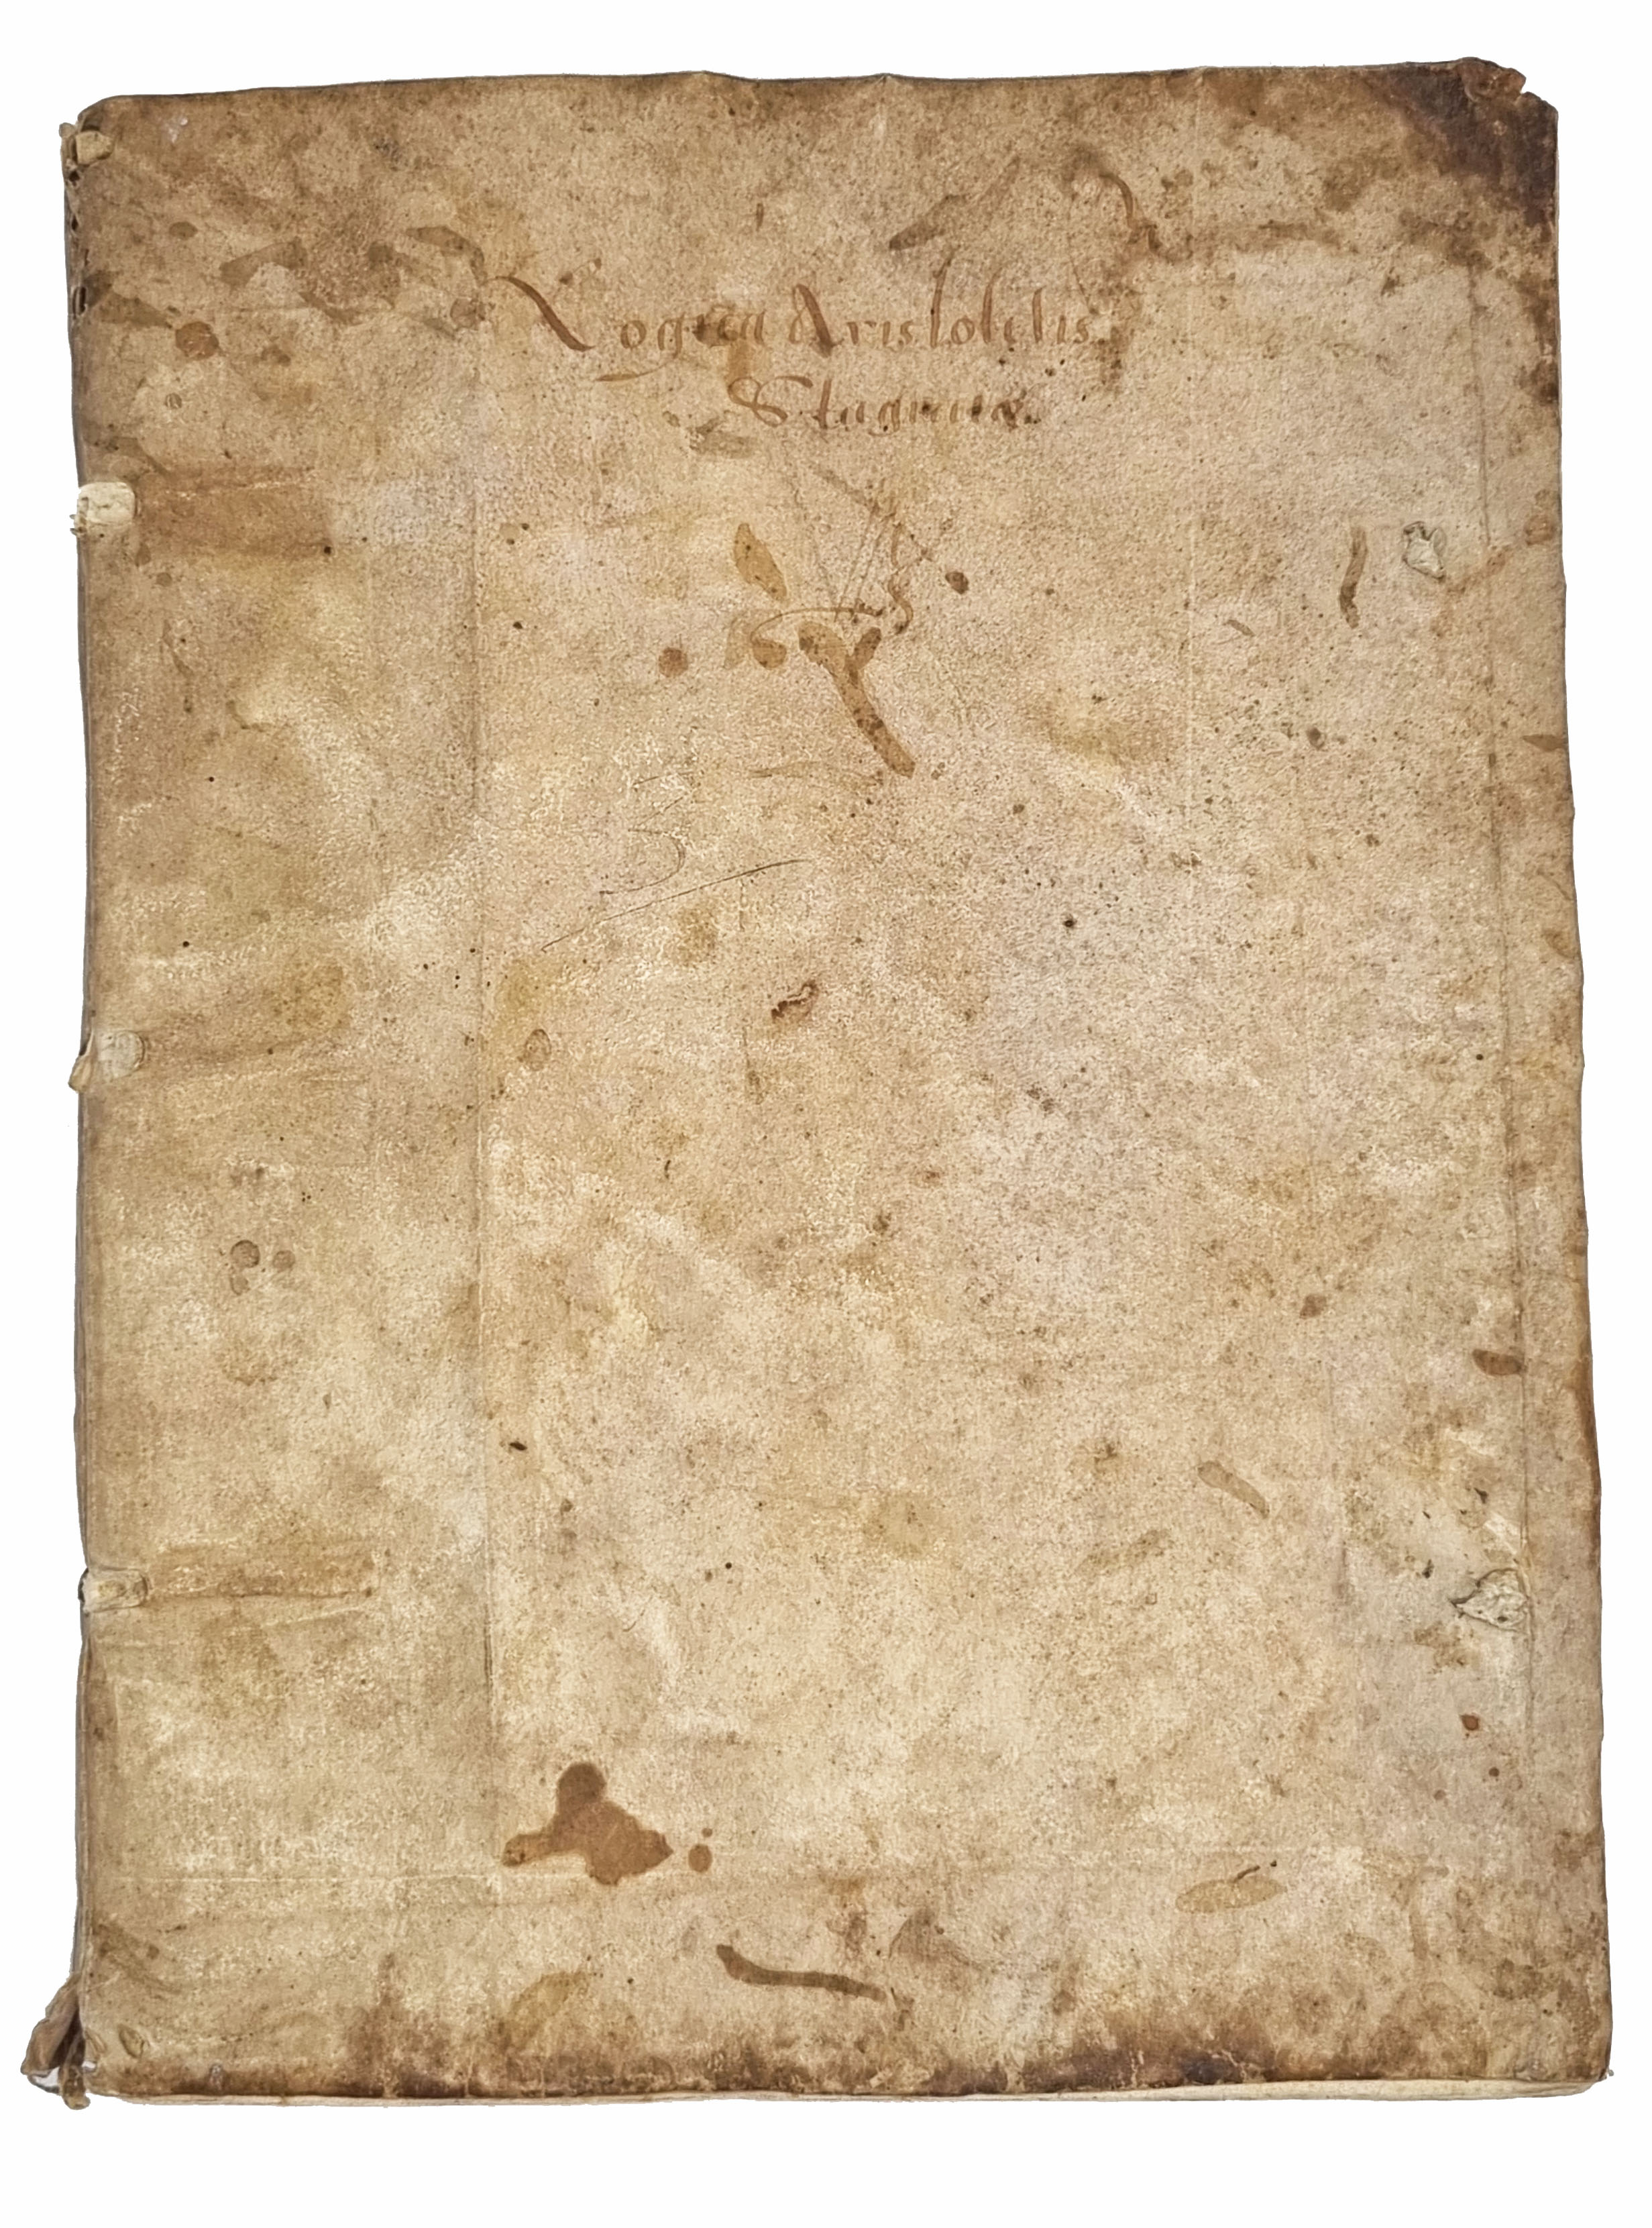 Logica Aristotelis
Stagiritæ.